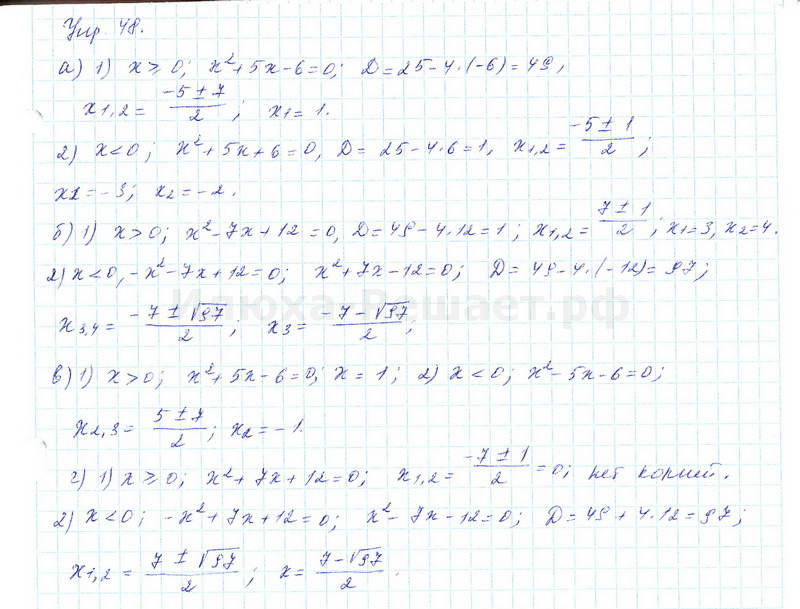 Упр 48.
а) 1) x ≥ 0; x²+5x-6=0; D=25-4·(-6)=49,
x1,2 = (-5±7)/2; x1=1.
2) x<0; x²+5x+6=0, D=25-4·6=1, x1,2 = (-5±1)/2;
x1=-3; x2=-2.
б) 1) x>0; x²-7x+12=0, D=49-4·12=1; x1,2 = (7±1)/2; x1=3, x2=4.
2) x<0, -x²-7x+12=0; x²+7x-12=0; D=49-4·(-12)=97;
Илюха-Решает.рф
x3,4 = (-7±√97)/2; x3 = (-7-√97)/2;
в) 1) x>0; x²+5x-6=0; x=1; 2) x<0; x²-5x-6=0;
x2,3 = (5±7)/2; x2=-1.
г) 1) x≥0; x²+7x+12=0; x1,2 = (-7±1)/2 =0; нет корней.
2) x<0; -x²+7x+12=0; x²-7x-12=0; D=49+4·12=97;
x1,2 = (7±√97)/2; x = (7-√97)/2.